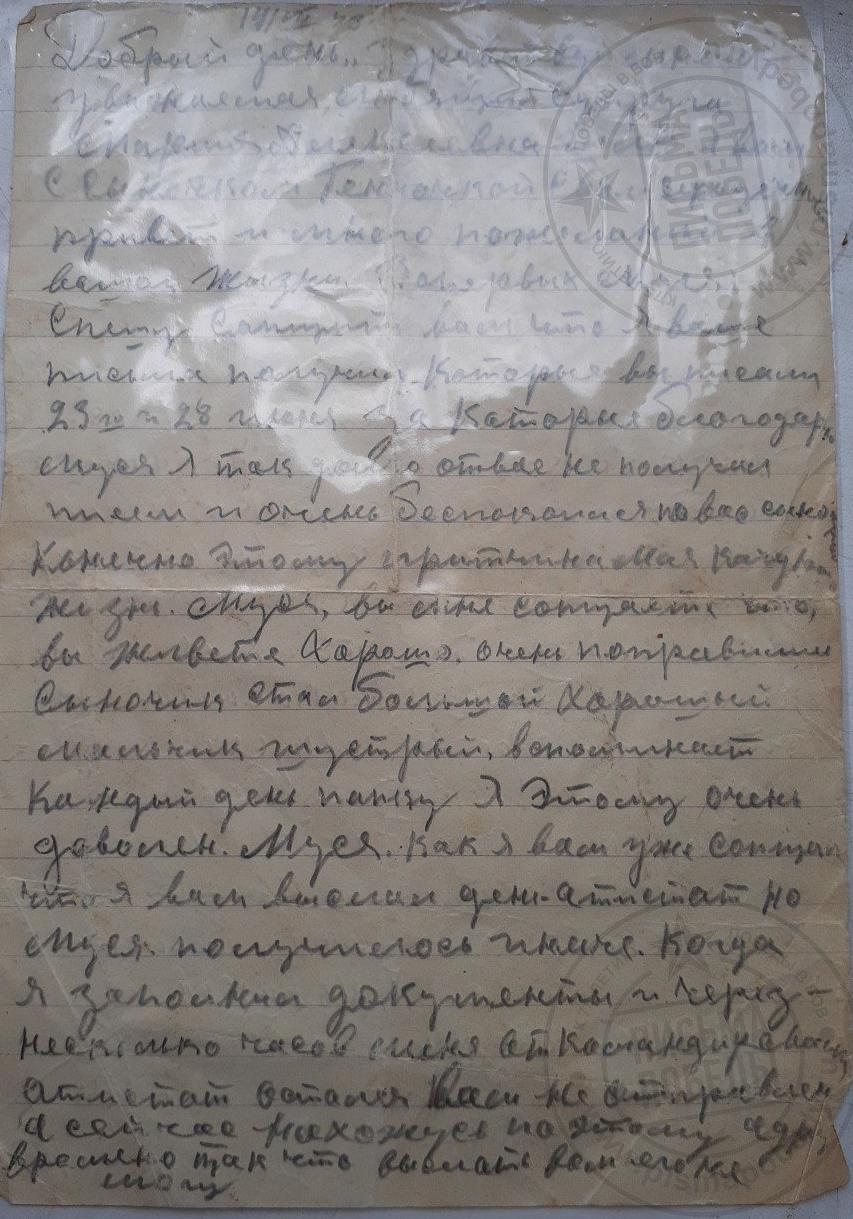 Добрый день, здравствуй
уважаемая супруга
Мария
с сыночком Геночкой вам
привет и много пожеланий в
вашей жизни. первых
Спешу сапщить вам что я ваше
письма получил Каторыя вы писали
23го и 28 июня за Каторые благодарю
Муся Я так долго отвас не получал
писем и очень беспокоился по вас
Конечно Этому притчина моя
жизн. Муся, вы мне сопщаете что,
вы живете Харошо, очень поправились
Сыночик стал большой Хороший
мальчик шустрый, вспоминает
Каждый день папку Я Этому очень
доволен. Муся. Как я вам уже сопщал
что я вам выслал ден-атистат но
Муся. получилось иначе. Когда
я заполнил документы и через-
несколько часов меня аткомандировали
атистат остался вам не атправлен
а сейчас нахожусь по этому
времено так что выслать вам его не
могу
ПИСЬМА
ПОБЕДЫ
ПИСЬМА
ПОБЕДЫ